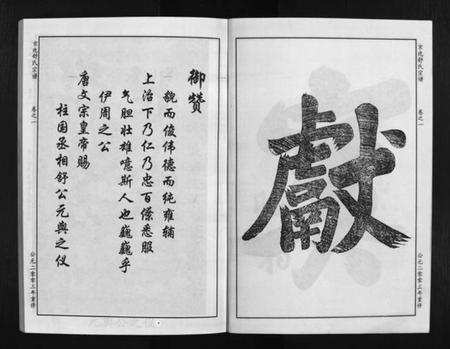 京兆舒氏宗谱
卷之一
公元二零零三年重修
獻
御赞
貌而俊伟德而纯雍辅
上治下乃仁乃忠百僚悉服
气胆壮雄噫斯人也巍巍乎
伊周之公
唐文宗皇帝赐
柱国丞相舒公元舆之仪
京兆舒氏宗谱
卷之一
公元二零零三年重修